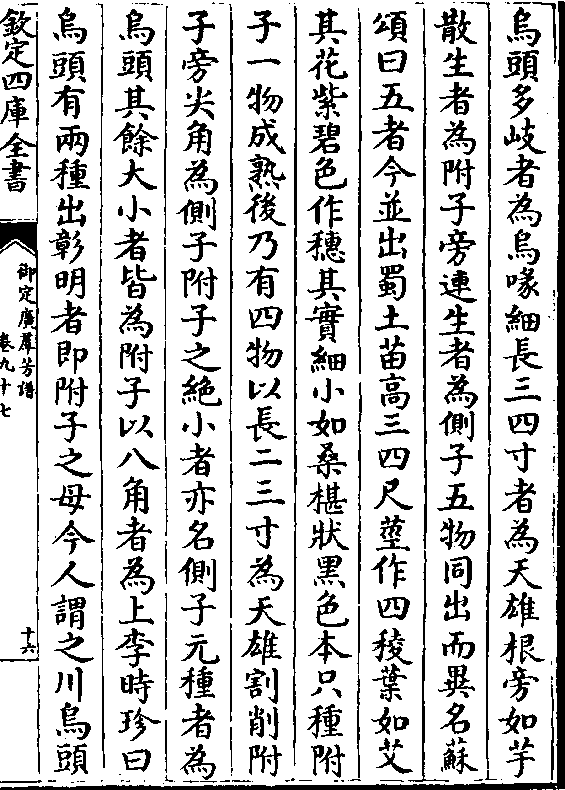 烏頭多岐者為烏喙細長三四寸者為天雄根旁如芋
散生者為附子旁連生者為側子五物同出而異名蘇
頌曰五者今並出蜀土苗高三四尺莖作四稜葉如艾
其花紫碧色作穗其實細小如桑椹狀黑色本只種附
子一物成熟後乃有四物以長二三寸為天雄割削附
子旁尖角為側子附子之絶小者亦名側子元種者為
烏頭其餘大小者皆為附子以八角者為上李時珍曰
烏頭有兩種出彰明者即附子之母今人謂之川烏頭
欽定四庫全書
御定廣羣芳譜
卷九十七
十六